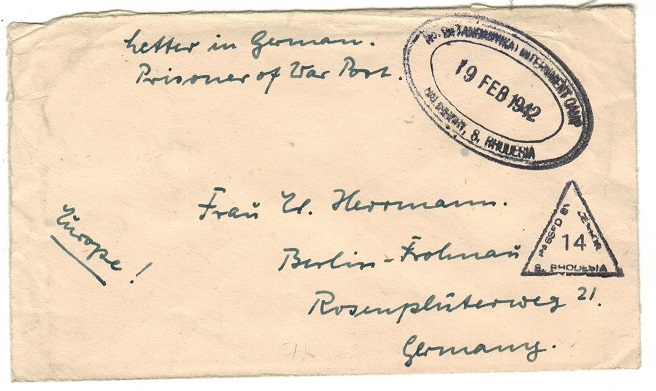 Letter in German.
Prisoner of War Post.
(TANGANYIKA) INTERNMENT CAMP
19 FEB 1942
SALISBURY, S. RHODESIA
Frau U. Herrmann.
Europe!
Berlin-Frohnau
PASSED BY CENSOR
14
S. RHODESIA
Rosenplüterweg 21.
Germany.